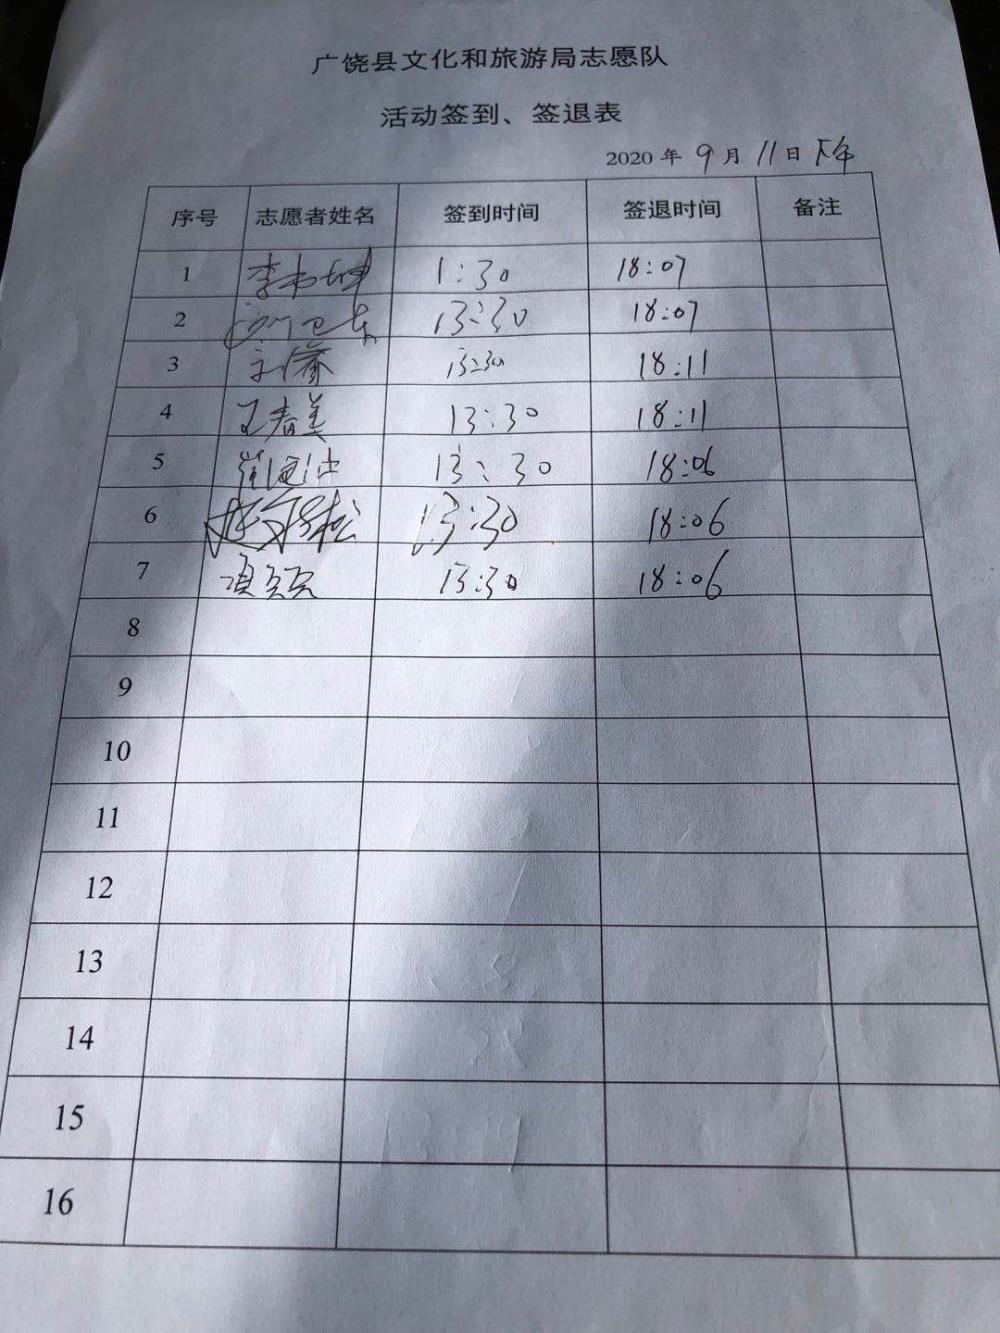 广饶县文化和旅游局志愿队
活动签到、签退表
2020 年 9 月 11 日 下午
序号 志愿者姓名 签到时间 签退时间 备注
1 李 坤 1:30 18:07
2 卫东 13:30 18:07
3 13:30 18:11
4 王春美 13:30 18:11
5 崔 13:30 18:06
6 赵 松 13:30 18:06
7 项 13:30 18:06
8
9
10
11
12
13
14
15
16